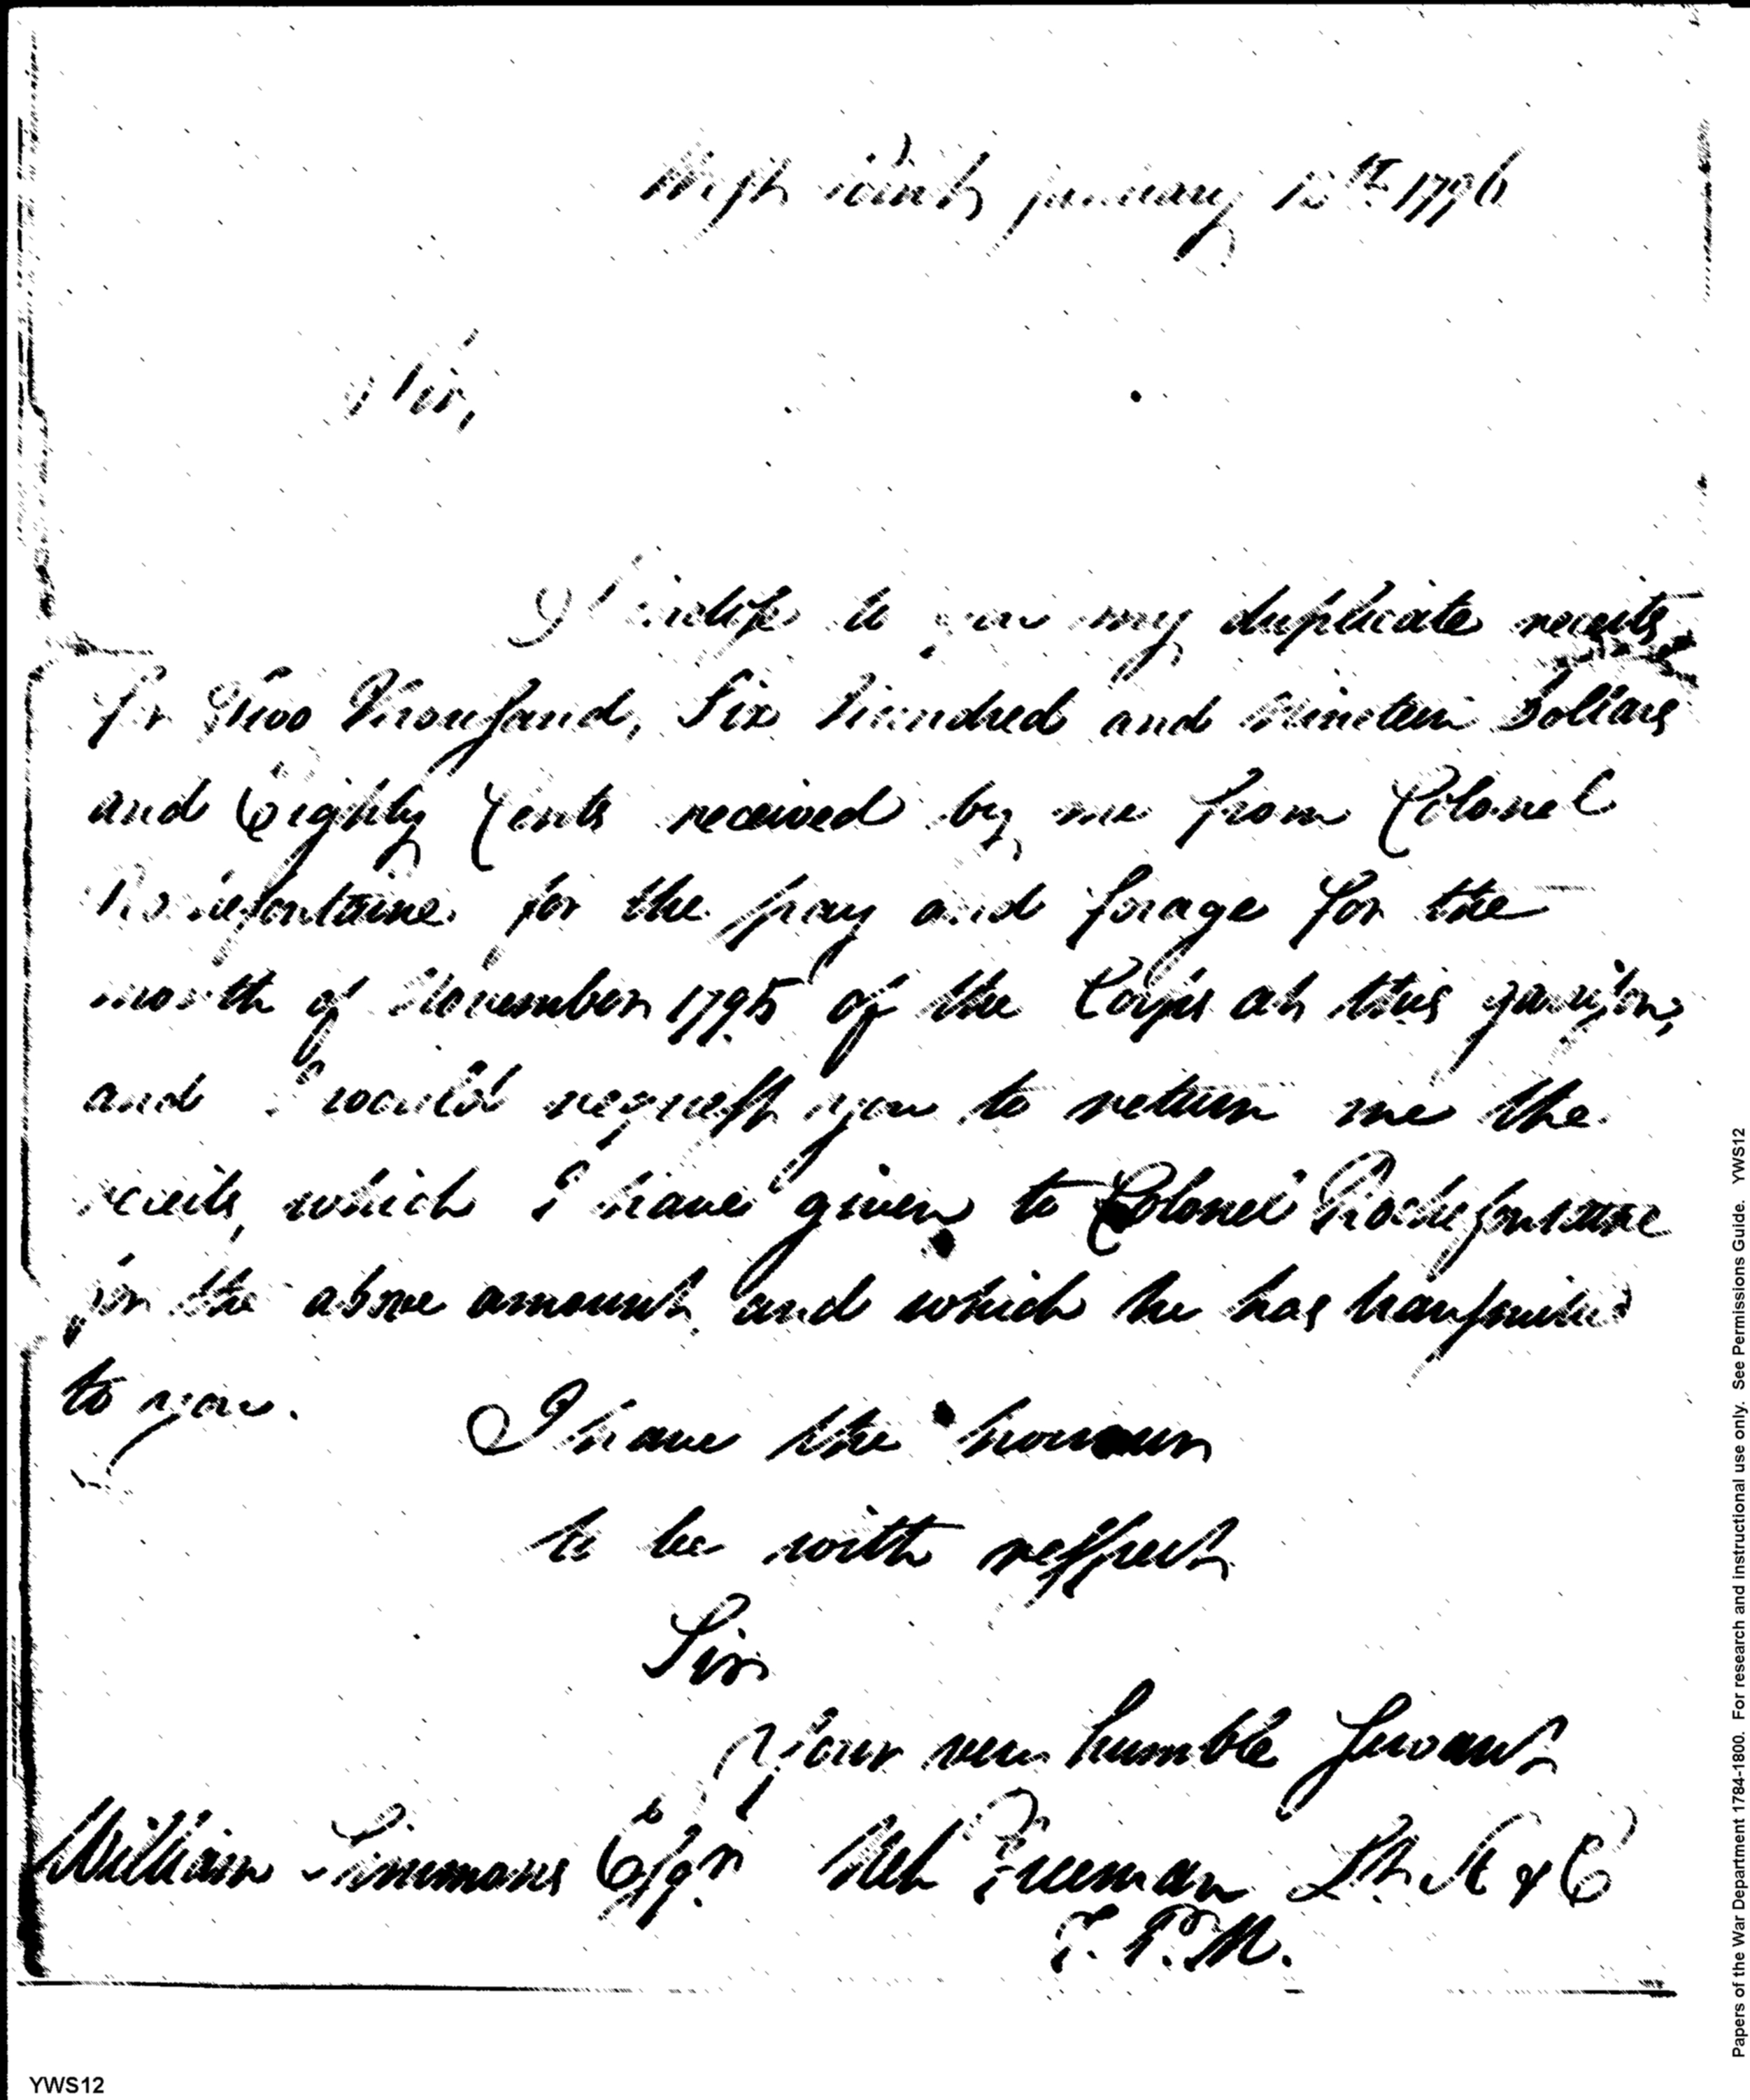 West Point january 12th 1796
Sir,
I inclose to you my duplicate receits
for Two Thousand, Six hundred and Nineteen Dollars
and Eighty Cents received by me from Colonel
Rochefontaine for the pay and forage for the
month of November 1795 of the Corps at this garrison,
and I would request you to return me the
receits which I have given to Colonel Rochefontaine
for the above amount and which he has transmitted
to you.
I have the honour
to be with respect
Sir
Your very humble Servant
William Simmons Esqr. Neh Freeman Lt. A & E
T. P. M.
YWS12
Papers of the War Department 1784-1800. For research and instructional use only. See Permissions Guide. YWS12